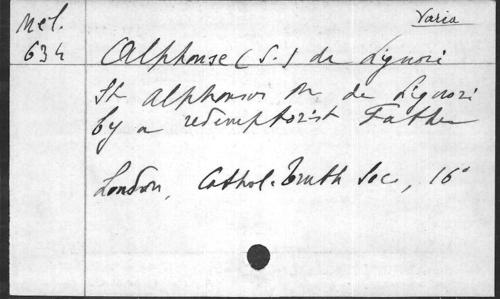 Varia
Mel.
634
Alphonse (S.) de Liguori
St Alphonsus M de Liguori
by a redemptorist Father
London, Cathol. Truth Soc, 16°